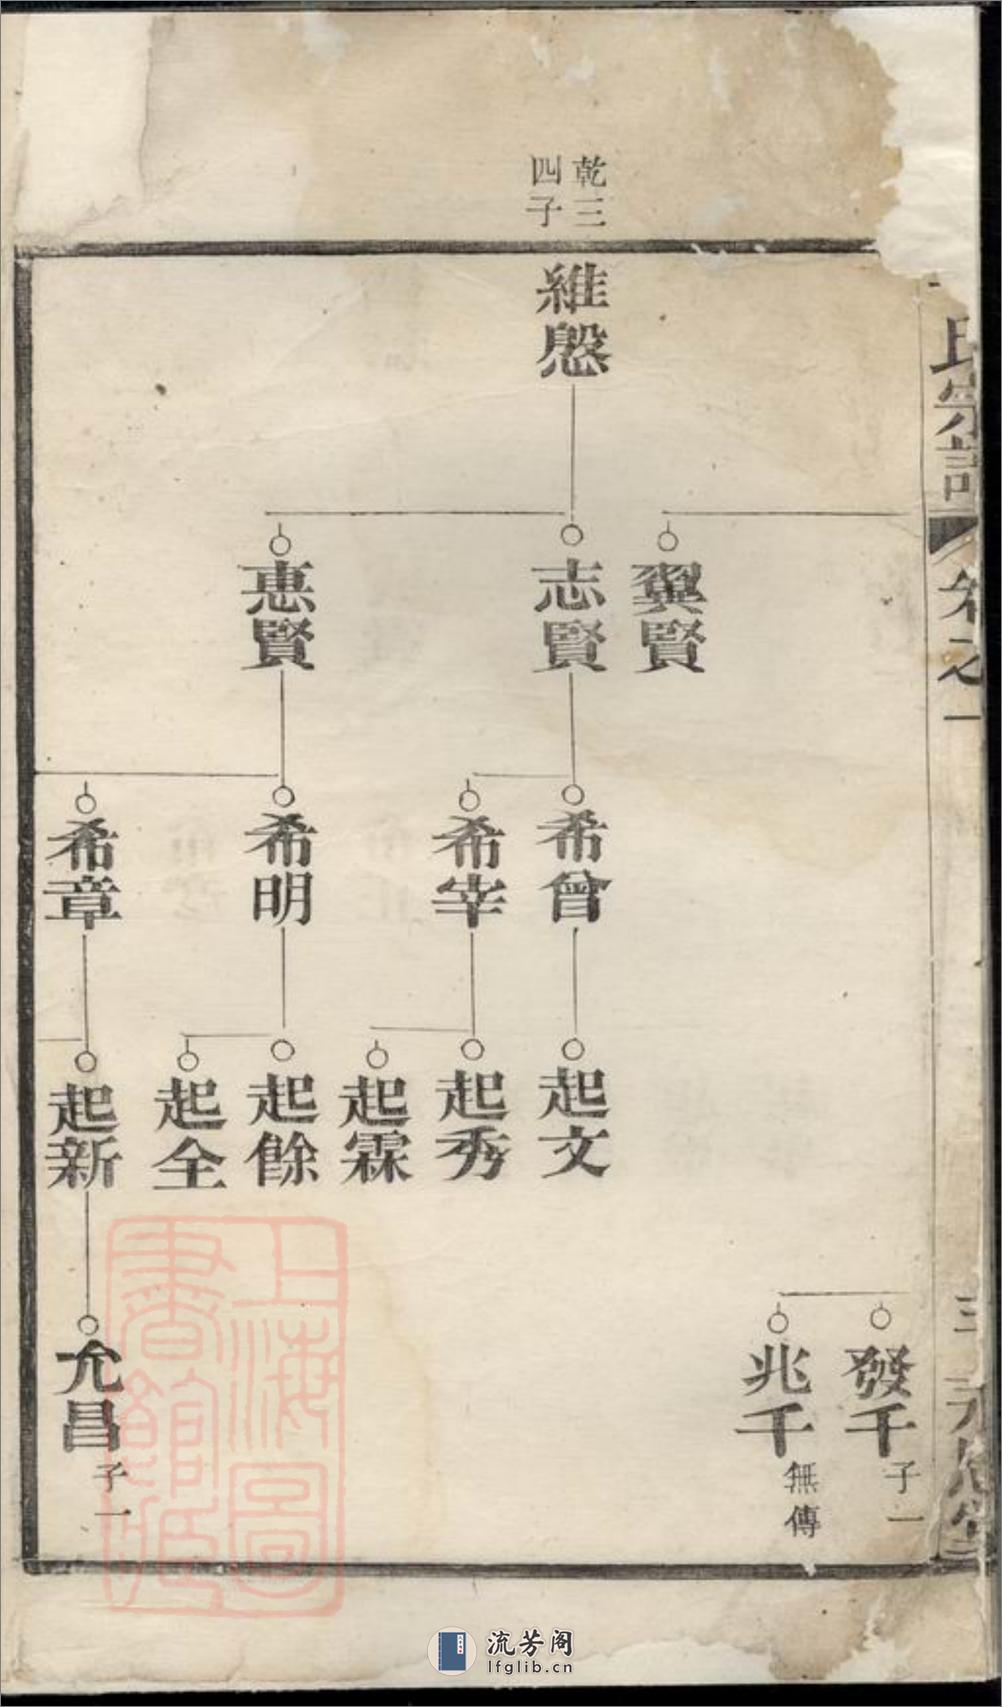 氏宗譜
卷之一
三
乾三
四子
維慇
翼賢
志賢
惠賢
希曾
希宰
希明
希章
起文
起秀
起霖
起餘
起全
起新
發千
子一
兆千
無傳
允昌
子一
上海圖
書館藏
流芳阁
lfglib.cn